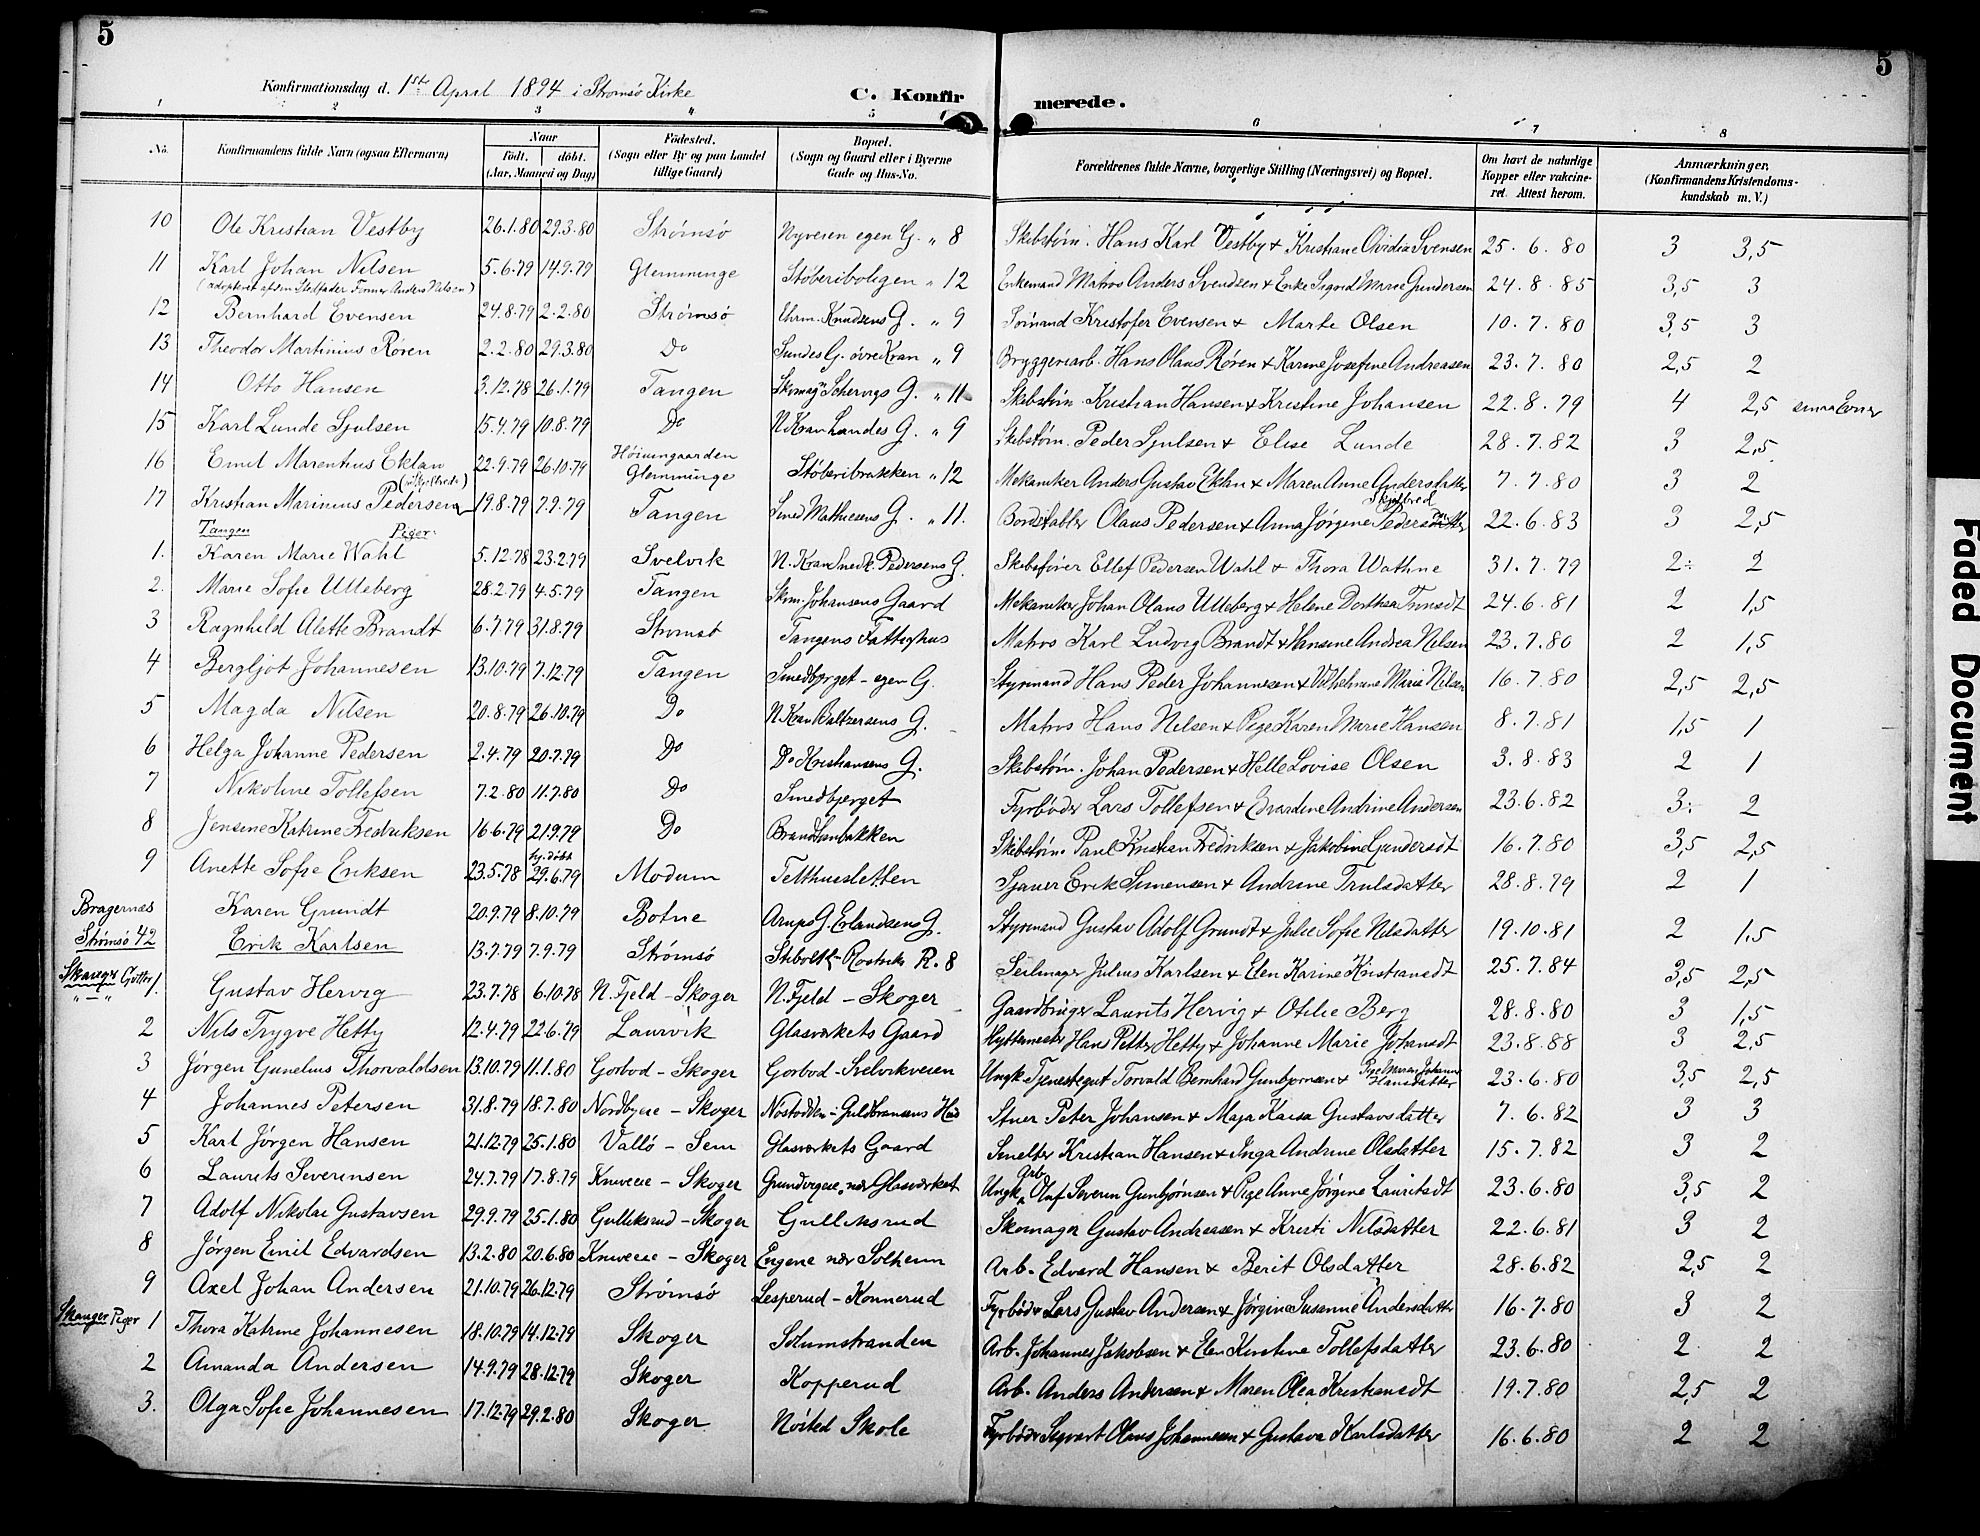 5
5
Konfirmationsdag d. 1ste April 1894 i Strømsø Kirke
C. Konfirmerede.
1 2 3 4 5 6 7 8
No. Konfirmandens fulde Navn (ogsaa Efternavn) Naar født. døbt. (Aar, Maaned og Dag) Fødested. (Sogn eller By og paa Landet tillige Gaard) Bopæl. (Sogn og Gaard eller i Byerne Gade og Hus-No. Forældrenes fulde Navne, borgerlige Stilling (Næringsvei) og Bopæl. Om havt de naturlige Kopper eller vakcineret. Attest herom. Anmærkninger. (Konfirmandens Kristendomskundskab m. V.)
10 Ole Kristian Vestby 26.1.80 29.3.80 Strømsø Nyveien egen G. " 8 Skibstøm. Hans Karl Vestby & Kristiane Ovidia Svensen 25.6.80 3 3,5
11 Karl Johan Nilsen 5.6.79 14.9.79 Glemminge Støberiboligen " 12 Enkemand Matros Anders Svendsen & Enke Sigrid Marie Gundersen 24.8.85 3,5 3
(adopteret af sin Stedfader Former Anders Nilsen)
12 Bernhard Evensen 24.8.79 2.2.80 Strømsø Uhrm. Knudsens G. " 9 Sømand Kristofer Evensen & Marte Olsen 10.7.80 3,5 3
13 Theodor Martinius Røren 2.2.80 29.3.80 Do Sundes G. øvre Kran " 9 Bryggeriarb. Hans Olaus Røren & Karine Josefine Andreasen 23.7.80 2,5 2
14 Otto Hansen 3.12.78 26.1.79 Tangen Skomag. Schervigs G. " 11 Skibstøm. Kristian Hansen & Kristine Johansen 22.8.79 4 2,5 smaa Evner
15 Karl Lunde Sjulsen 15.4.79 10.8.79 Do N. Kran Landes G. " 9 Skibstøm. Peder Sjulsen & Elise Lunde 28.7.82 3 2,5
16 Emil Marenthius Eklan 22.9.79 26.10.79 Høiumgaarden Glemminge Støberibrakken " 12 Mekaniker Anders Gustav Eklan & Maren Anne Andersdatter 7.7.80 3 2
17 Kristian Marinius Pedersen 19.8.79 7.9.79 Tangen Smed Mathiesens G. " 11. Bordstabler Olaus Pedersen & Anna Jørgine Pedersdatter 22.6.83 3 2,5
Tangen Piger:
1. Karen Marie Wahl 5.12.78 23.2.79 Svelvik N. Kran Snedk. Pedersens G. Skibsfører Ellef Pedersen Wahl & Thora Wathne 31.7.79 2÷ 2
2. Marie Sofie Ulleberg 28.2.79 4.5.79 Tangen Skom. Johansens Gaard Mekaniker Johan Olaus Ulleberg & Helene Dorthea Tronsdt 24.6.81 2 1,5
3 Ragnhild Alette Brandt 6.7.79 31.8.79 Strømsø Tangens Fattighus Matros Karl Ludvig Brandt & Hansine Andrea Nilsen 23.7.80 2 1,5
4 Bergljot Johannesen 13.10.79 7.12.79 Tangen Smedbjerget - egen G. Styrmand Hans Peder Johannesen & Vilhelmine Marie Nilsen 16.7.80 2,5 2,5
5 Magda Nilsen 20.8.79 26.10.79 Do N. Kran Baltzersens G. Matros Hans Nilsen & Pige Karen Marie Hansen 8.7.81 1,5 1
6 Helga Johanne Pedersen 2.4.79 20.7.79 Do Do Kristiansens G. Skibstøm. Johan Pedersen & Helle Lovise Olsen 3.8.83 2 1
7 Nikoline Tollefsen 7.2.80 11.7.80 Do Smedbjerget Fyrbøder Lars Tollefsen & Evardine Andrine Andersen 23.6.82 3÷ 2
8 Jensine Katrine Fredriksen 16.6.79 21.9.79 Do Brandtenbakken Skibstøm. Paul Kristian Fredriksen & Jakobine Gundersdt 16.7.80 3,5 2,5
9 Anette Sofie Eriksen 23.5.78 hj. døbt 29.6.79 Modum Telthuesletten Sjauer Erik Simensen & Andrine Trulsdatter 28.8.79 2 1
Bragernæs Karen Grundt 20.9.79 8.10.79 Botne Arups G. Erlandsens G. Styrmand Gustav Adolf Grundt & Julie Sofie Nilsdatter 19.10.81 2 1.5
Strømsø 42 Erik Karlsen 13.7.79 7.9.79 Strømsø Stibolt - Rostriks R. 8 Seilmager Julius Karlsen & Elen Karine Kristiansdt 25.7.84 3,5 2,5
Skauger Gutter 1. Gustav Hervig 23.7.78 6.10.78 N. Fjeld - Skoger N. Fjeld - Skoger Gaardbruger Laurits Hervig & Otilie Berg 28.8.80 3 1,5
2 Nils Trygve Hetty 12.4.79 22.6.79 Laurvik Glasværkets Gaard Hyttemester Hans Petter Hetty & Johanne Marie Johansdt 23.8.88 3 2,5
3 Jørgen Gunelius Thorvaldsen 13.10.79 11.1.80 Gorbod - Skoger Gorbod - Svelvikveien Ungk. Tjenestegut Torvald Bernhard Gunbjørnsen & Pige Maren Johanne Hansdatter 23.6.80 3,5 2,5
4 Johannes Petersen 31.8.79 18.7.80 Nordbyeie - Skoger Nøstodden i Guldbransens Hus Stuer Peter Johansen & Maja Kaisa Gustavsdatter 7.6.82 3 3
5 Karl Jørgen Hansen 21.12.79 25.1.80 Vallø - Sem Glasværkets Gaard Smelter Kristian Hansen & Inga Andrine Olsdatter 15.7.82 3 2
6 Laurits Severinsen 24.7.79 17.8.79 Kniveeie - Skoger Grundvigeie, nær Glasværket Ungk. Arb. Oluf Severin Gunbjørnsen & Pige Anne Jørgine Lauritsdt 23.6.80 3,5 2
7 Adolf Nikolai Gustavsen 29.9.79 25.1.80 Gulliksrud - Skoger Gulliksrud Skomager Gustav Andreasen & Kristi Nilsdatter 22.6.81 3 2
8 Jørgen Emil Edvardsen 13.2.80 20.6.80 Kniveeie - Skoger Engene nær Solheim Arb. Edvard Hansen & Berit Olsdatter 28.6.82 2,5 2
9 Axel Johan Andersen 21.10.79 26.12.79 Strømsø Lesperud - Konnerud Fyrbøder Lars Gustav Andersen & Jørgine Susanne Andersdatter 16.7.80 3 2
Skauger Piger 1 Thora Katrine Johannesen 18.10.79 14.12.79 Skoger Solumstranden Arb. Johannes Jakobsen & Elen Kirstine Tollefsdatter 23.6.80 2 2
2 Amanda Andersen 14.9.79 28.12.79 Skoger Kopperud Arb. Anders Andersen & Maren Olea Kristiansdt 19.7.80 2,5 2
3. Olga Sofie Johannesen 17.12.79 29.2.80 Skoger Nøsted Skole Fyrbøder Sigvart Olaus Johannesen & Gustava Karlsdatter 16.6.80 2 2
Faded Document